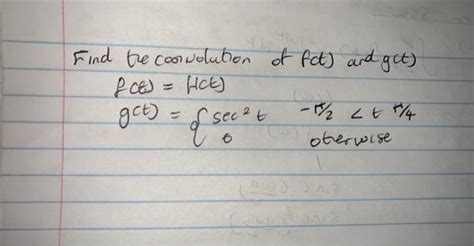 Find the coonvolution of f(t) and g(t)
f(t) = H(t)
g(t) = { sec² t -π/2 < t π/4
0 oterwise